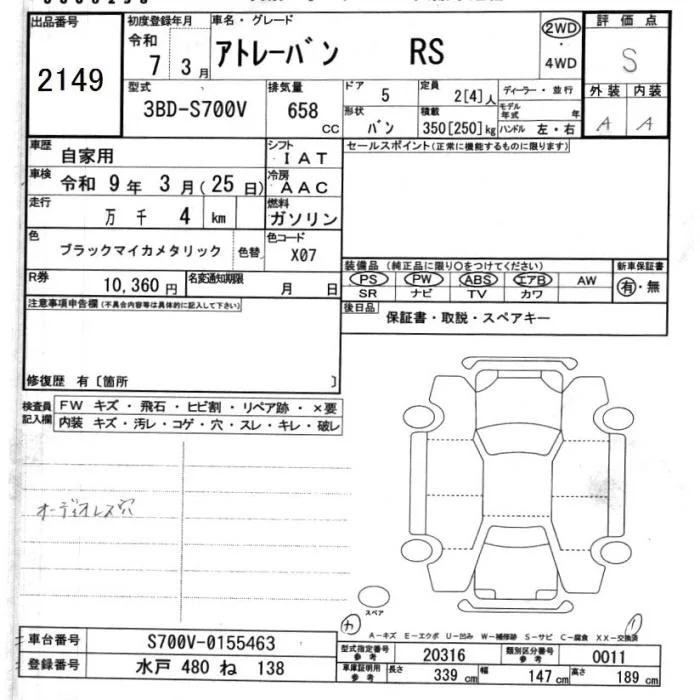 出品番号 初度登録年月 車名・グレード 評価点
令和 アトレーバン RS 2WD S
2149 7年 3月 ・ 4WD
型式 排気量 ドア 5 定員 2[4]人 ディーラー・並行 外装 内装
3BD-S700V 658 CC 形状 バン 積載 350[250]kg モデル年式 年 ハンドル 左・右 A A
車歴 自家用 シフト IAT セールスポイント(正常に機能するものに限ります)
車検 令和 9年 3月(25日) 冷房 AAC
走行 万 千 4 km 燃料 ガソリン
色 ブラックマイカメタリック 色替 色コード X07
R券 10,360円 名変通知期限 月 日
装備品 (純正品に限り○をつけてください) 新車保証書
PS PW ABS エアB AW 有・無
SR ナビ TV カワ
注意事項申告欄(不具合内容等は具体的に記入して下さい)
後日品 保証書・取説・スペアキー
修復歴 有〔箇所 〕
検査員記入欄 FW キズ・飛石・ヒビ割・リペア跡・×要
内装 キズ・汚レ・コゲ・穴・スレ・キレ・破レ
オーディオレス穴
スペア
カ A-キズ E-エクボ U-凹み W-補修跡 S-サビ C-腐食 XX-交換済
車台番号 S700V-0155463 型式指定番号 参考 20316 類別区分番号 参考 0011
登録番号 水戸 480 ね 138 車庫証明用 参考 長さ 339cm 幅 147cm 高さ 189cm